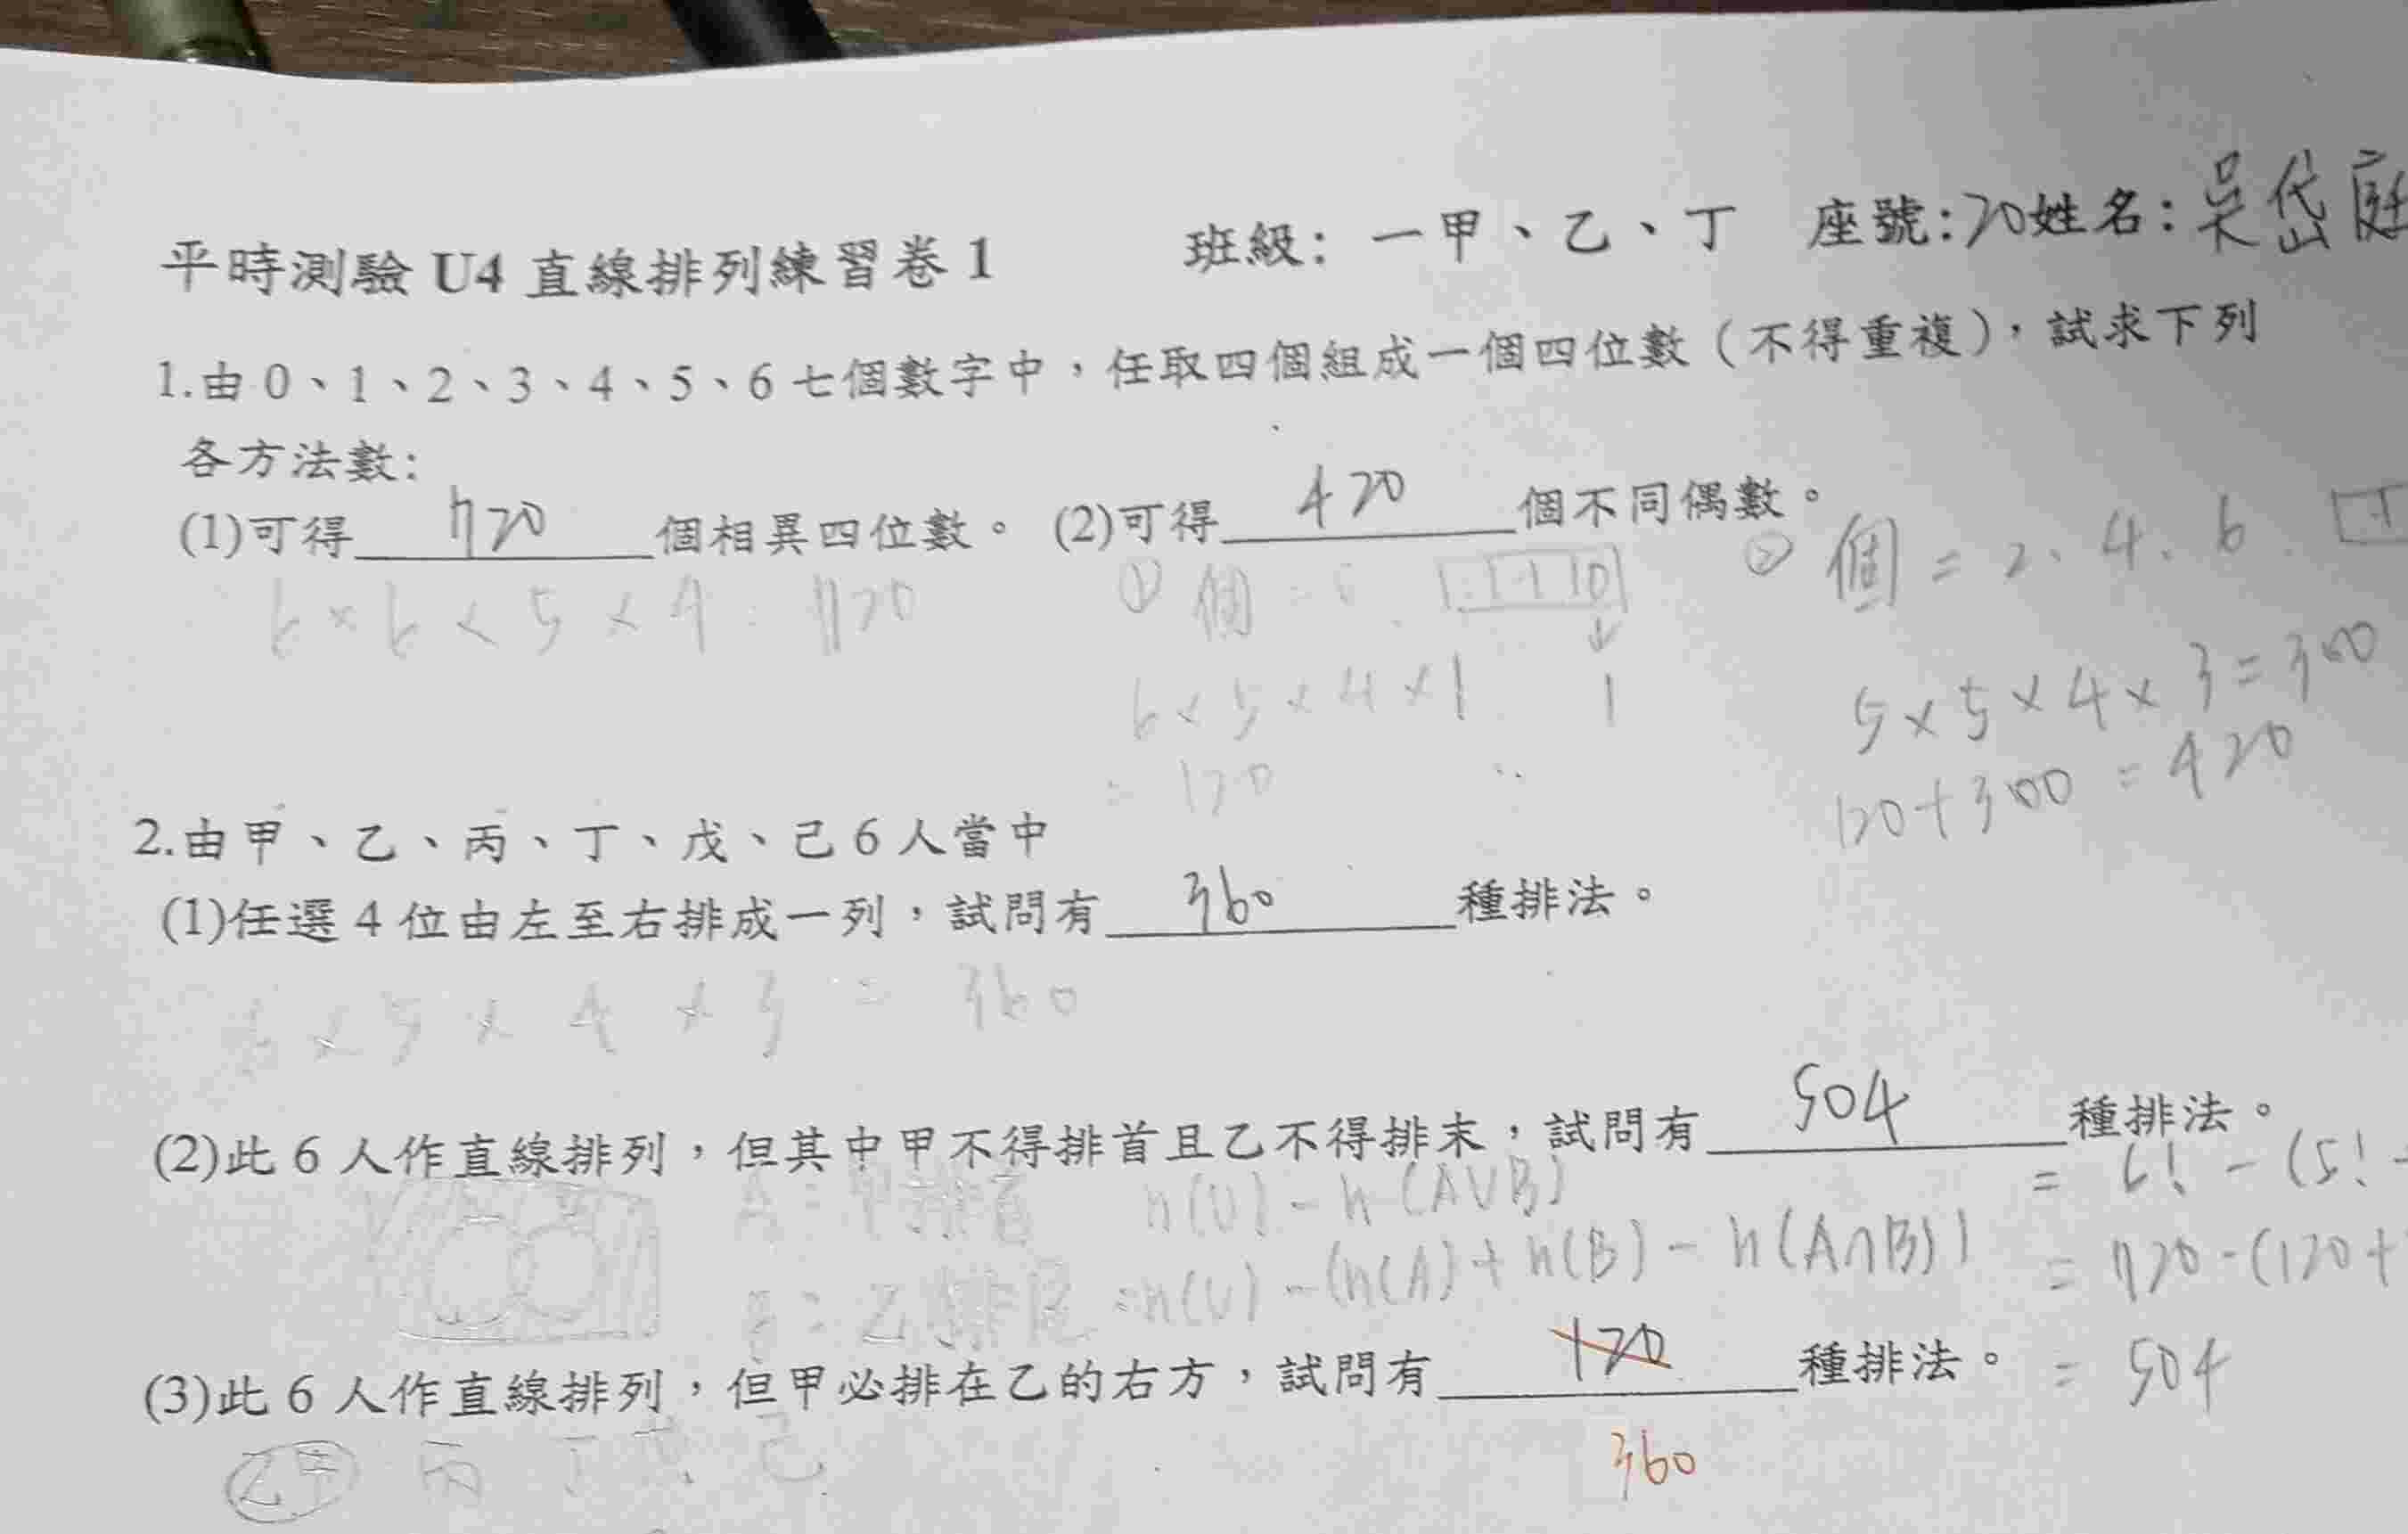 平時測驗 U4 直線排列練習卷 1 班級: 一甲、乙、丁 座號:20姓名:吳岱庭
1.由 0、1、2、3、4、5、6 七個數字中,任取四個組成一個四位數(不得重複),試求下列
各方法數:
(1)可得 720 個相異四位數。 (2)可得 420 個不同偶數。
6×6×5×4=720
① 個=0
0
↓
6×5×4×1 1
=120
② 個=2、4、6
5×5×4×3=300
120+300=420
2.由甲、乙、丙、丁、戊、己 6 人當中
(1)任選 4 位由左至右排成一列,試問有 360 種排法。
6×5×4×3=360
(2)此 6 人作直線排列,但其中甲不得排首且乙不得排末,試問有 504 種排法。
A:甲排首 n(U)-n(A∪B) =6!-(5!
B:乙排尾 =n(U)-(n(A)+n(B)-n(A∩B)) =720-(120+
=504
(3)此 6 人作直線排列,但甲必排在乙的右方,試問有 120 種排法。
360
乙甲 丙 丁 戊 己